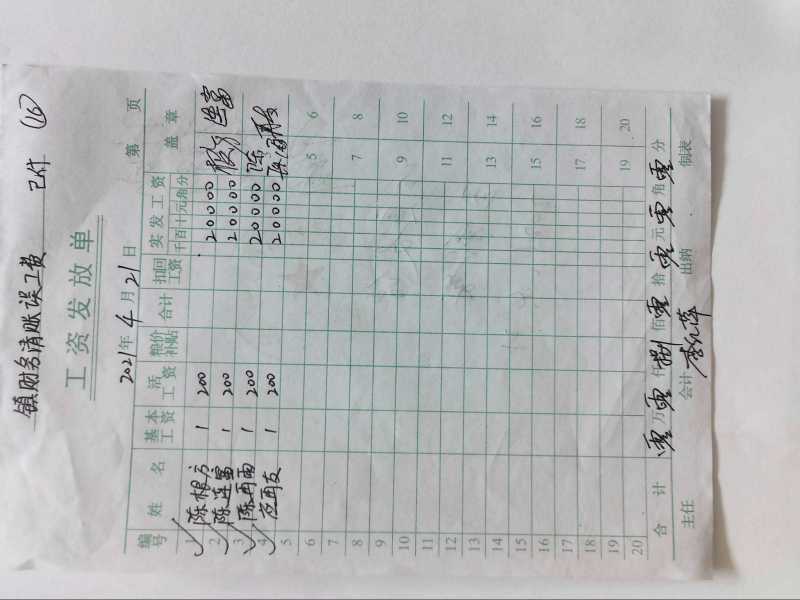 镇财务清账误工费 已付 (16)
工资发放单
2021年4月21日 第 页
编号 姓名 基本工资 活工资 粮价补贴 合计 扣回工资 实发工资 盖章
千百十元角分
1 陈根方 1 200 20000 根方
2 陈连富 1 200 20000 连富
3 陈再雷 1 200 20000 陈
4 应再友 1 200 20000
5 5 6
6
7 7 8
8
9 9 10
10
11 11 12
12
13 13 14
14
15 15 16
16
17 17 18
18
19 19 20
20
合计 零万零仟捌佰零拾零元零角零分
主任 会计 李允萍 出纳 制表